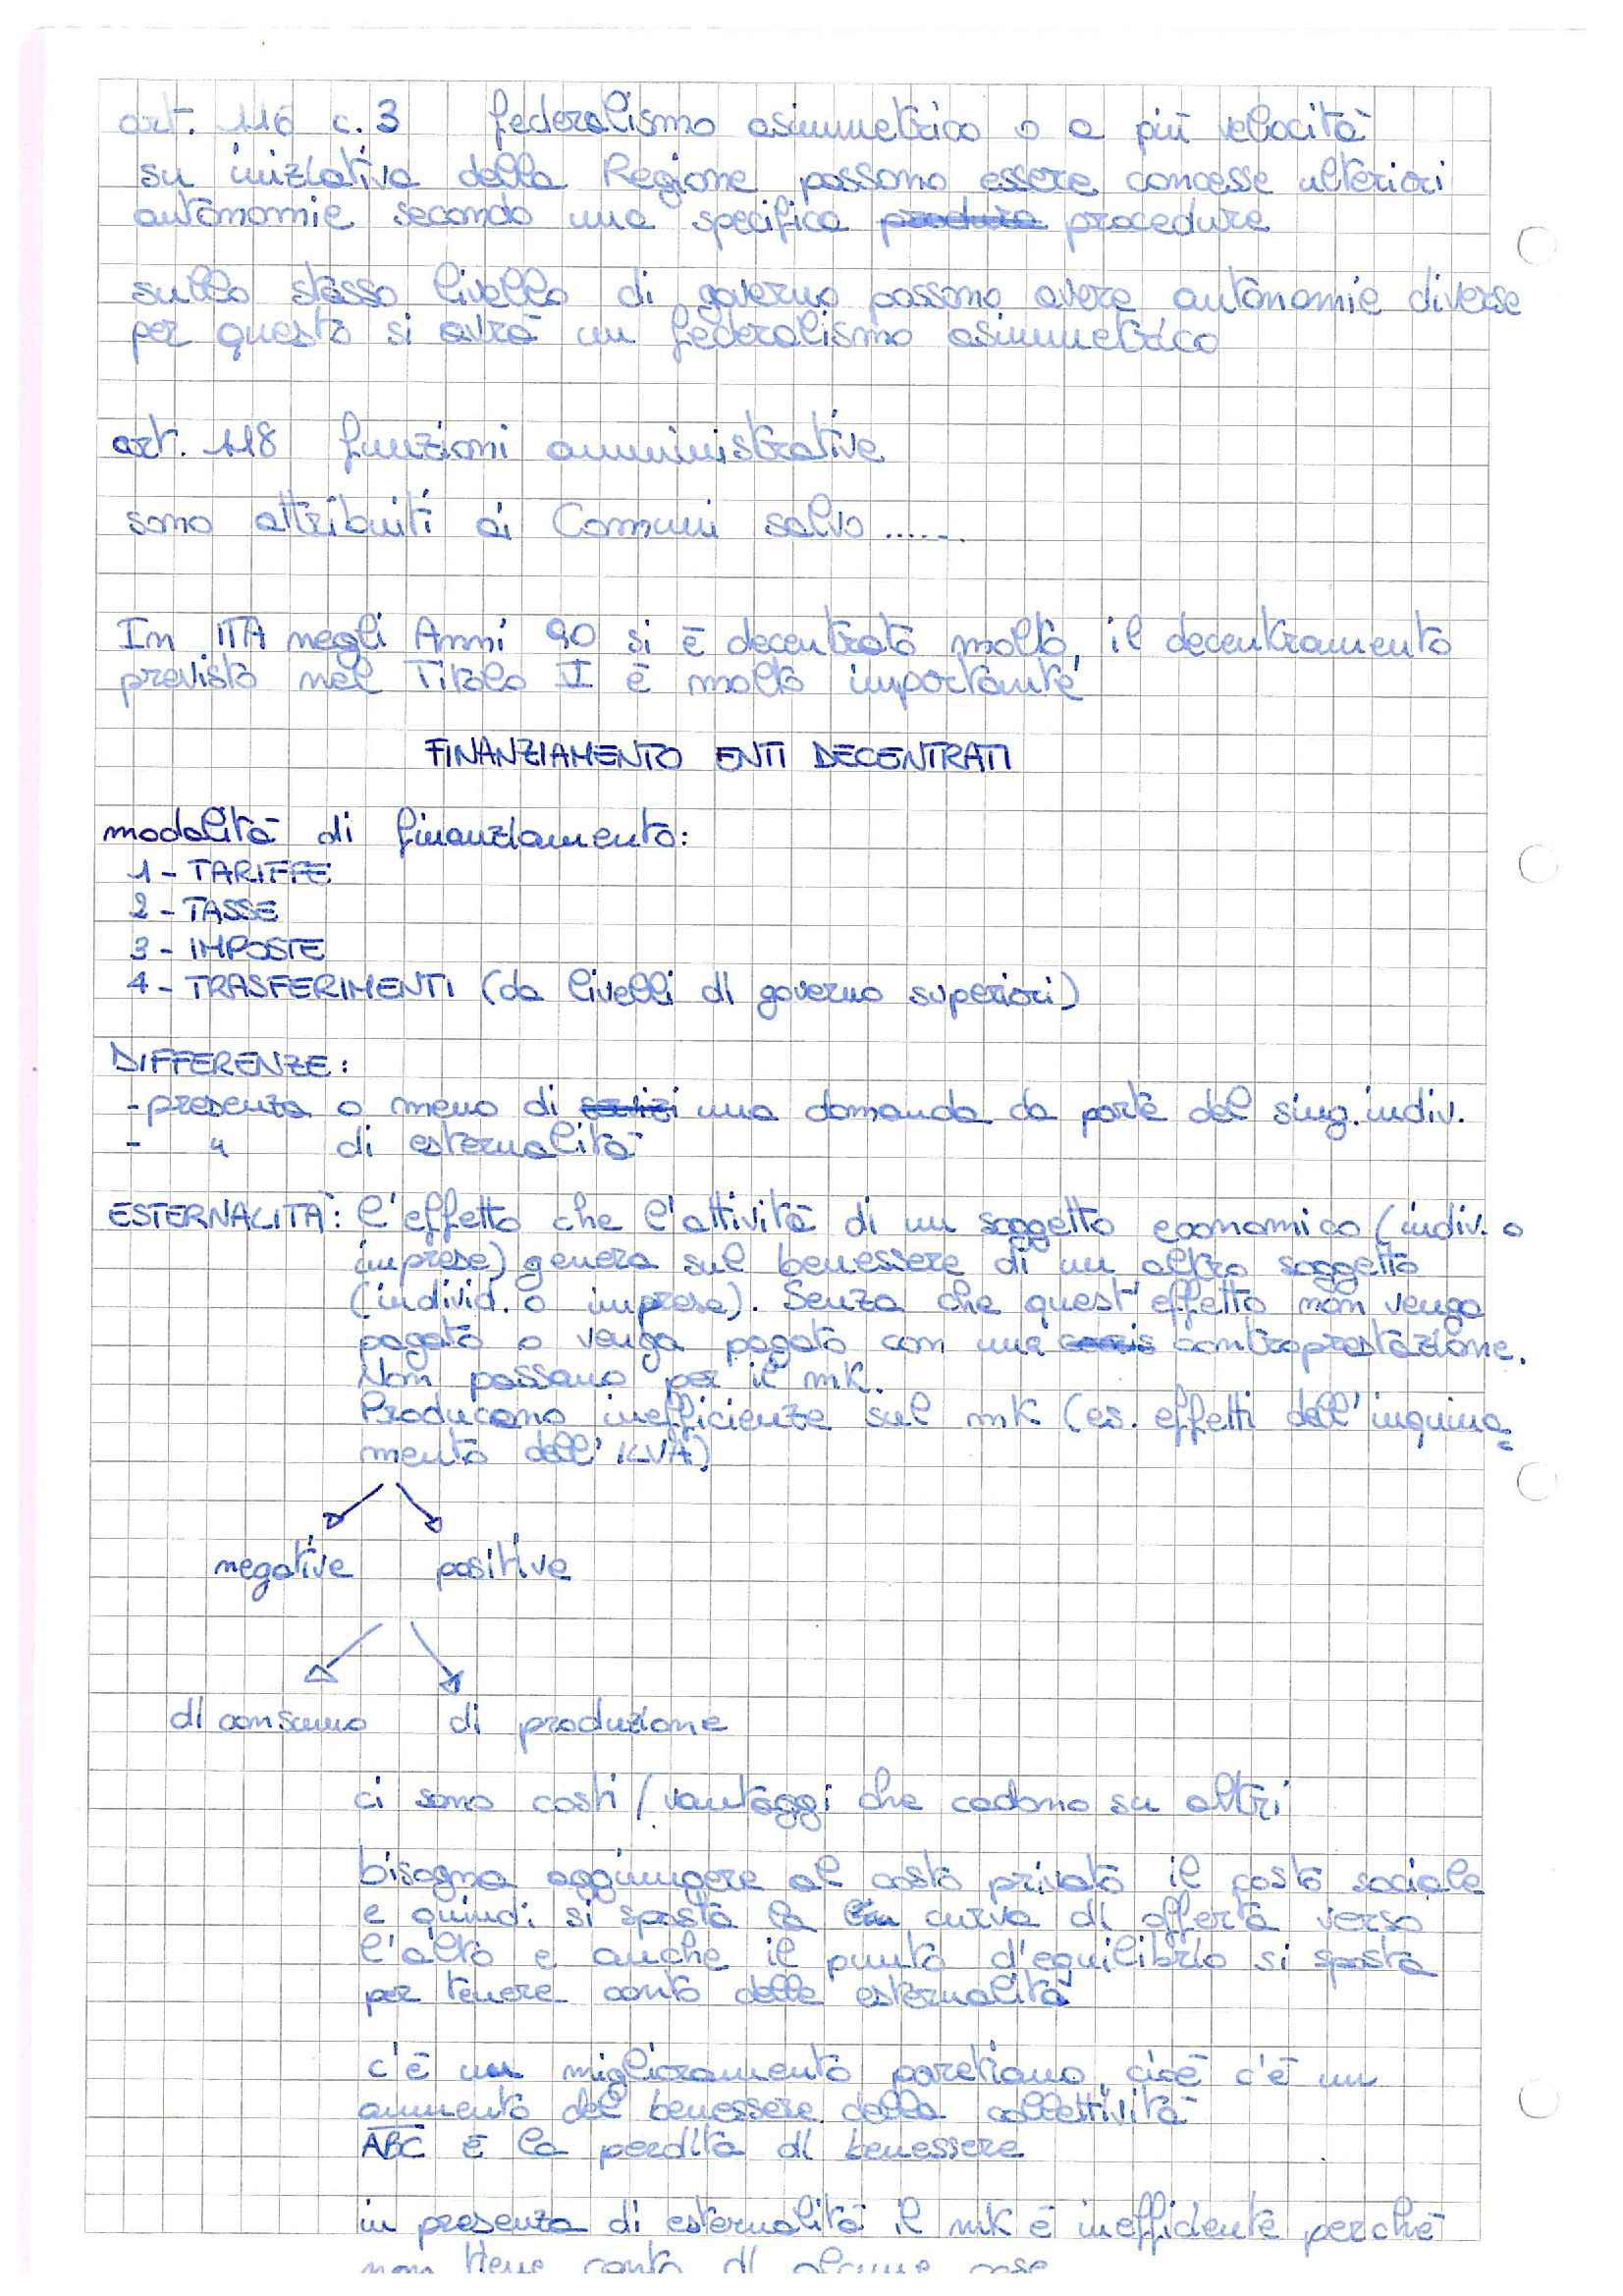 art. 116 c. 3 federalismo asimmetrico o a più velocità
su iniziativa della Regione possono essere concesse ulteriori
autonomie secondo una specifica procedure
sullo stesso livello di governo possono avere autonomie diverse
per questo si avrà un federalismo asimmetrico
art. 118 funzioni amministrative
sono attribuiti ai Comuni salvo ......
In ITA negli Anni 90 si è decentrato molto, il decentramento
previsto nel Titolo V è molto importante
FINANZIAMENTO ENTI DECENTRATI
modalità di finanziamento:
1 - TARIFFE
2 - TASSE
3 - IMPOSTE
4 - TRASFERIMENTI (da livelli di governo superiori)
DIFFERENZE:
- presenza o meno di una domanda da parte del sing. indiv.
- " di esternalità
ESTERNALITÀ: l'effetto che l'attività di un soggetto economico (indiv. o
imprese) genera sul benessere di un altro soggetto
(individ. o impresa). Senza che quest'effetto non venga
pagato o venga pagato con una controprestazione.
Non passano per il mK.
Producono inefficienze sul mK (es. effetti dell'inquina=
mento dell'ILVA)
negative positive
di consumo di produzione
ci sono costi / vantaggi che cadono su altri
bisogna aggiungere al costo privato il costo sociale
e quindi si sposta la curva di offerta verso
l'alto e anche il punto d'equilibrio si sposta
per tenere conto delle esternalità
c'è un miglioramento paretiano, cioè c'è un
aumento del benessere della collettività
ABC è la perdita di benessere
in presenza di esternalità il mK è inefficiente perchè
non tiene conto di alcune cose